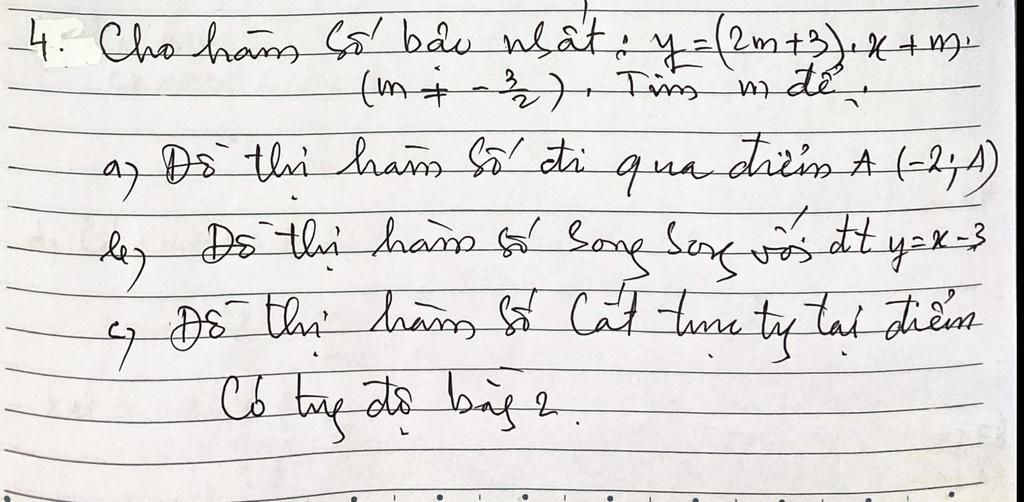 4. Cho hàm số bậc nhất: y = (2m+3).x + m.
(m ≠ - 3/2). Tìm m để:
a) Đồ thị hàm số đi qua điểm A (-2; 1)
b) Đồ thị hàm số song song với đt y = x - 3
c) Đồ thị hàm số cắt trục tg tại điểm
Có tug độ bằng 2.